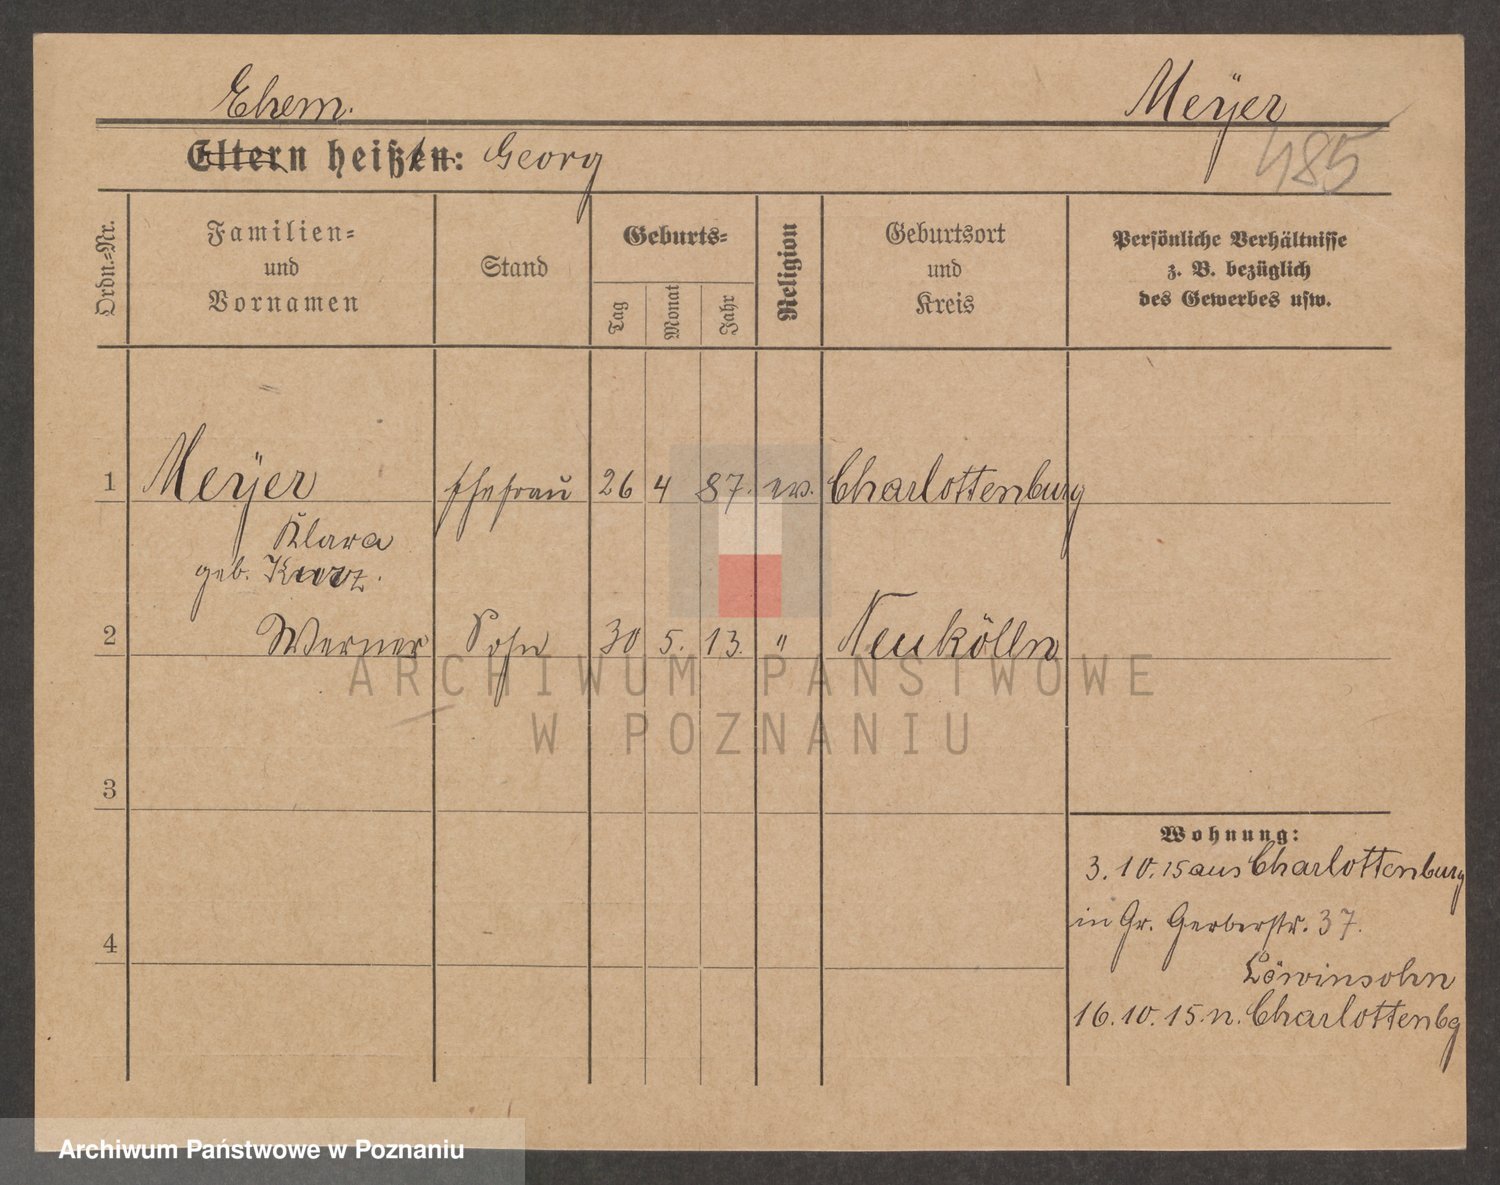 Ehem. Meÿer
Eltern heißt: Georg
485
Ordn.-Nr.
Familien-
und
Vornamen
Stand
Geburts-
Tag
Monat
Jahr
Religion
Geburtsort
und
Kreis
Persönliche Verhältnisse
z. B. bezüglich
des Gewerbes usw.
1 Meÿer Ehefrau 26 4 87. ev. Charlottenburg
Klara
geb. Kurz.
2 Werner Sohn 30 5. 13. " Neukölln
3
4
Wohnung:
3.10.15 aus Charlottenburg
in Gr. Gerberstr. 37.
Löwinsohn
16.10.15. n. Charlottenbg
ARCHIWUM PAŃSTWOWE
W POZNANIU
Archiwum Państwowe w Poznaniu